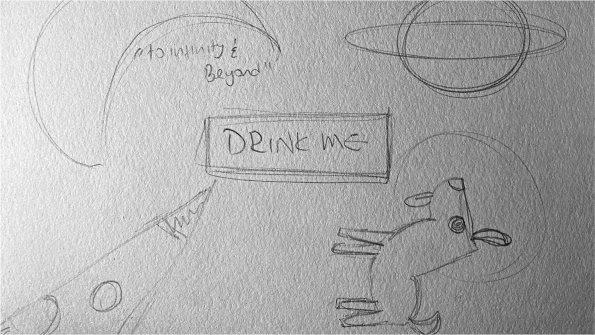 "to infinity &
Beyond"
DRINK ME